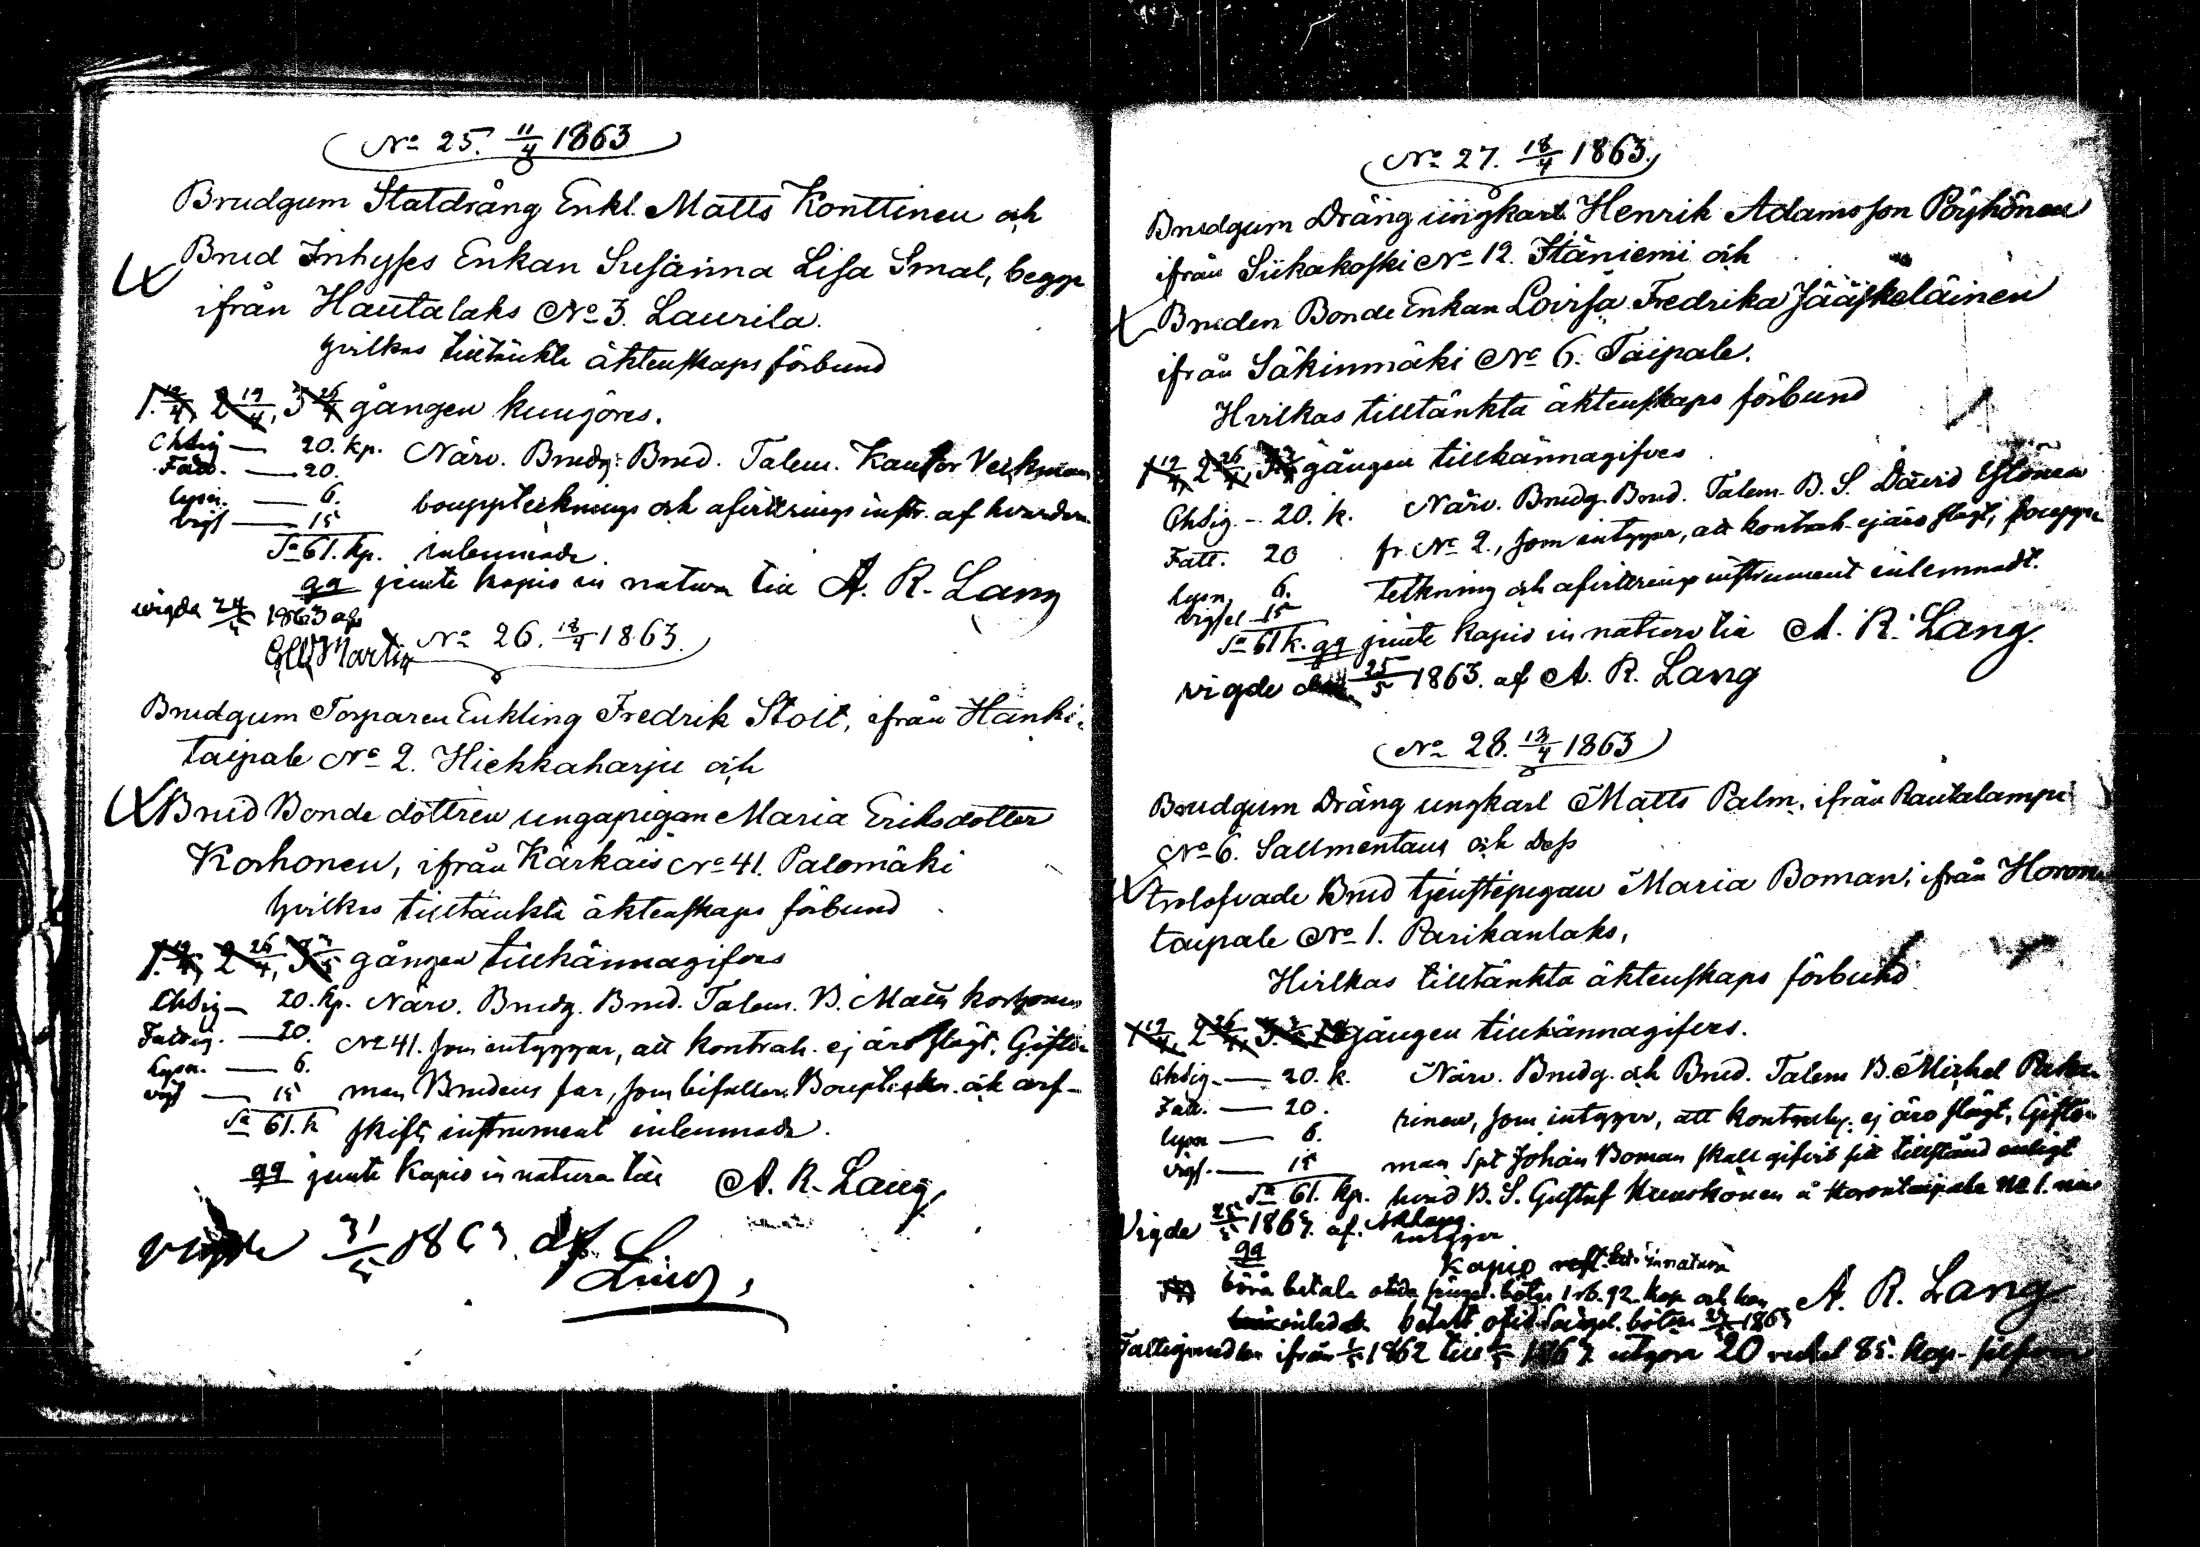 No 25. 11/4 1863
Brudgum Statdräng Enkl. Matts Konttinen och
Brud Inhyses Enkan Susanna Lisa Smal, begge
ifrån Hautalaks No 3. Laurila.
hvilkas tilltänkte äktenskaps förbund
1. 12/4, 2 19/4, 3 26/4 gången kungöres.
20. kp. Närv. Brudg. Brud. Talem. Kantor
Fatt. — 20.
lysn. — 6. bouppteknings och afvittrings instr. af
vigs — 15
Sa 61. kp. inlemnade.
qq jemte kapio in natura till A. R. Lang
vigda 24/5 1863 af
Martin
No 26. 18/4 1863.
Brudgum Torparen Enkling Fredrik Stolt, ifrån Hanki-
taipale No 2. Hiekkaharju och
Brud Bonde dottren ungapigan Maria Eriksdotter
Korhonen, ifrån Kärkäis No 41. Palomäki
hvilkas tilltänkta äktenskaps förbund
1. 19/4, 2 26/4, 3 3/5 gången tillkännagifves
20. kp. Närv. Brudg. Brud. Talem. B. Matts Korhonen
Fattig. — 20. No 41. som intygar, att kontrah. ej äro slägt. Gifto-
Lysn. — 6.
vigs — 15 man Brudens far, som bifaller. och arf-
Sa 61. k skifts instrument inlemnade.
qq jemte Kapio in natura till A. R. Lang
vigde 31/5 1863. af
No 27. 18/4 1863.
Brudgum Dräng ungkarl Henrik Adamsson Pöyhönen
ifrån Siikakoski No 12. Itäniemi och
Bruden Bonde Enkan Lovisa Fredrika Jääskeläinen
ifrån Säkinmäki No 6. Taipale.
Hvilkas tilltänkta äktenskaps förbund
1 19/4, 2 26/4, 3 3/5 gången tillkännagifves
20. k. Närv. Brudg. Brud. Talem. B. S. David Ylönen
Fatt. 20 fr. No 2., som intygar, att kontrah. ej äro slägt,
lysn. 6. tekning och afvittrings instrument inlemnadt.
vigsel 15
Sa 61 k. qq jemte kapio in natura till A. R. Lang.
vigde 25/5 1863. af A. R. Lang
No 28. 13/4 1863
Brudgum Dräng ungkarl Matts Palm, ifrån Rautalampi
No 6. Sallmentaus och Dess
trolofvade Brud tjenstepigan Maria Boman, ifrån Horon-
taipale No 1. Parikanlaks,
Hvilkas tilltänkta äktenskaps förbund
1 19/4, 2 26/4, 3. 3/5 gången tillkännagifves.
20. k. Närv. Brudg. och Brud. Talem B. Mickel
Fatt. — 20. som intygar, att kontrah. ej äro slägt, Gifto-
lysn — 6.
vigs. — 15 man Spt Johan Boman skall gifvit sitt tillstånd enligt
Sa 61. kp. B. S. Gustaf å Horontaipale No 1.
Vigde 25/5 1863. af
intygar
qq Kapio in natura
böra betala 1 rb. 92. kop och A. R. Lang
betalt böter 1863
ifrån 1862 till 1863 utgöra 20 rubel 85. kop. silfver